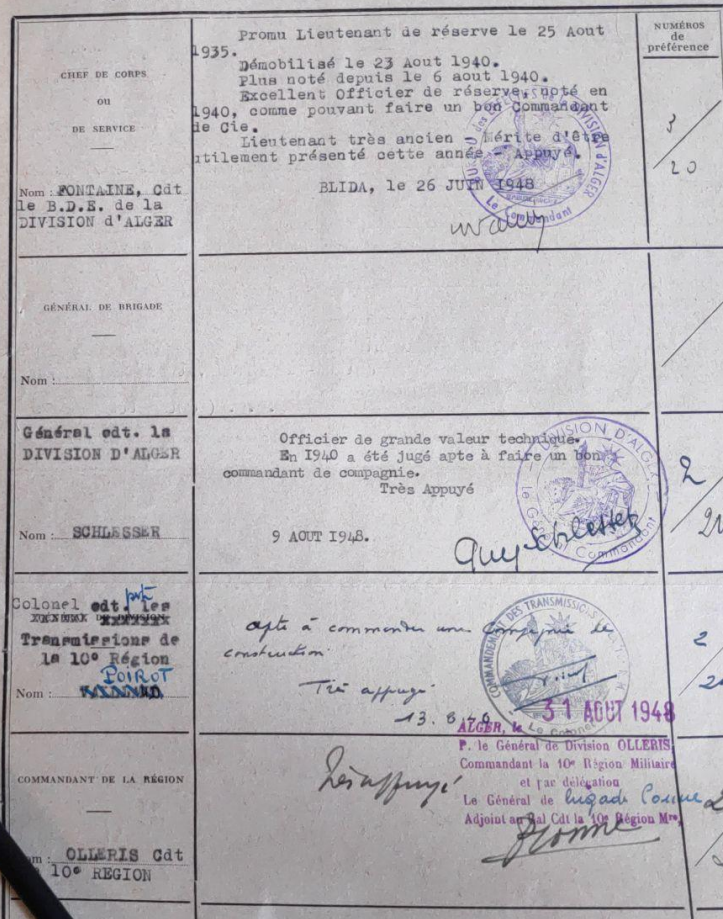 CHEF DE CORPS
OU
DE SERVICE
Nom : FONTAINE, Cdt
le B.D.E. de la
DIVISION d'ALGER
Promu Lieutenant de réserve le 25 Aout
1935.
Démobilisé le 23 Aout 1940.
Plus noté depuis le 6 aout 1940.
Excellent Officier de réserve, noté en
1940, comme pouvant faire un bon Commandant
de Cie.
Lieutenant très ancien - Mérite d'Etre
utilement présenté cette année - Appuyé.
BLIDA, le 26 JUIN 1948
DIVISION D'ALGER
Le Commandant
NUMÉROS
de
préférence
3
20
GÉNÉRAL DE BRIGADE
Nom :
Général cdt. la
DIVISION D'ALGER
Nom : SCHLESSER
Officier de grande valeur technique.
En 1940 a été jugé apte à faire un bon
commandant de compagnie.
Très Appuyé
9 AOUT 1948.
DIVISION D'ALGER
Le Général Commandant
Guy Schlesser
2
21
Colonel cdt. les
Transmissions de
la 10° Région
POIROT
Nom :
apte à commander une compagnie de
construction
Très appuyé
13.8.48
COMMANDEMENT DES TRANSMISSIONS
Le Colonel
2
COMMANDANT DE LA RÉGION
OLLERIS Cdt
10° REGION
Très appuyé
ALGER, le 31 AOUT 1948
P. le Général de Division OLLERIS
Commandant la 10e Région Militaire
et par délégation
Le Général de brigade
Adjoint au Gal Cdt la 10e Région Mre,
2